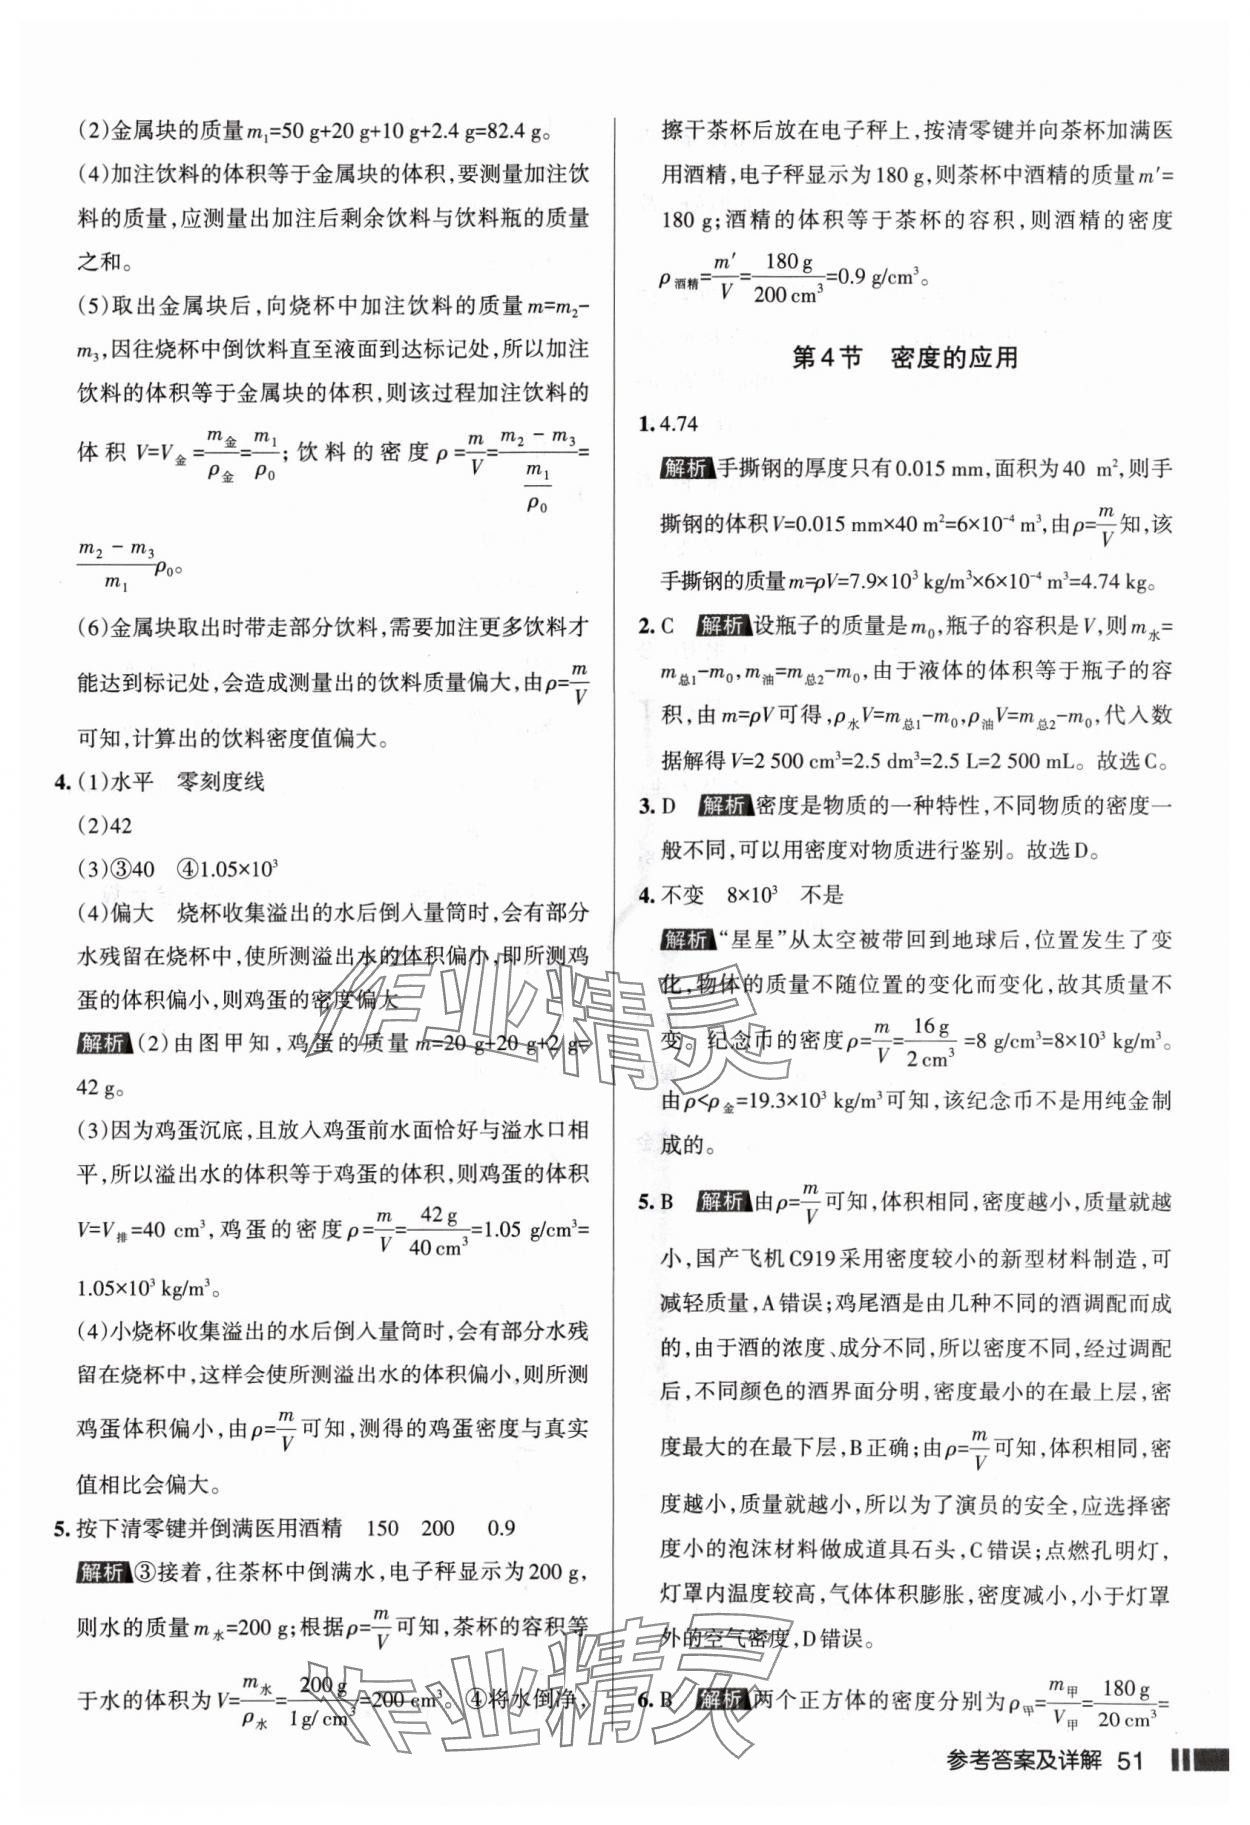 (2)金属块的质量m₁=50 g+20 g+10 g+2.4 g=82.4 g。
(4)加注饮料的体积等于金属块的体积,要测量加注饮
料的质量,应测量出加注后剩余饮料与饮料瓶的质量
之和。
(5)取出金属块后,向烧杯中加注饮料的质量m=m₂-
m₃,因往烧杯中倒饮料直至液面到达标记处,所以加注
饮料的体积等于金属块的体积,则该过程加注饮料的
体积V=V金=m金/ρ金=m₁/ρ₀;饮料的密度ρ=m/V=(m₂-m₃)/(m₁/ρ₀)=
(m₂-m₃)/m₁ ρ₀。
(6)金属块取出时带走部分饮料,需要加注更多饮料才
能达到标记处,会造成测量出的饮料质量偏大,由ρ=m/V
可知,计算出的饮料密度值偏大。
4.(1)水平 零刻度线
(2)42
(3)③40 ④1.05×10³
(4)偏大 烧杯收集溢出的水后倒入量筒时,会有部分
水残留在烧杯中,使所测溢出水的体积偏小,即所测鸡
蛋的体积偏小,则鸡蛋的密度偏大
解析 (2)由图甲知,鸡蛋的质量m=20 g+20 g+2 g=
42 g。
(3)因为鸡蛋沉底,且放入鸡蛋前水面恰好与溢水口相
平,所以溢出水的体积等于鸡蛋的体积,则鸡蛋的体积
V=V排=40 cm³,鸡蛋的密度ρ=m/V=42 g/40 cm³=1.05 g/cm³=
1.05×10³ kg/m³。
(4)小烧杯收集溢出的水后倒入量筒时,会有部分水残
留在烧杯中,这样会使所测溢出水的体积偏小,则所测
鸡蛋体积偏小,由ρ=m/V可知,测得的鸡蛋密度与真实
值相比会偏大。
5.按下清零键并倒满医用酒精 150 200 0.9
解析 ③接着,往茶杯中倒满水,电子秤显示为200 g,
则水的质量m水=200 g;根据ρ=m/V可知,茶杯的容积等
于水的体积为V=m水/ρ水=200 g/1 g/cm³=200 cm³。④将水倒净,
擦干茶杯后放在电子秤上,按清零键并向茶杯加满医
用酒精,电子秤显示为180 g,则茶杯中酒精的质量m′=
180 g;酒精的体积等于茶杯的容积,则酒精的密度
ρ酒精=m′/V=180 g/200 cm³=0.9 g/cm³。
第4节 密度的应用
1.4.74
解析 手撕钢的厚度只有0.015 mm,面积为40 m²,则手
撕钢的体积V=0.015 mm×40 m²=6×10⁻⁴ m³,由ρ=m/V知,该
手撕钢的质量m=ρV=7.9×10³ kg/m³×6×10⁻⁴ m³=4.74 kg。
2.C 解析 设瓶子的质量是m₀,瓶子的容积是V,则m水=
m总1-m₀,m油=m总2-m₀,由于液体的体积等于瓶子的容
积,由m=ρV可得,ρ水V=m总1-m₀,ρ油V=m总2-m₀,代入数
据解得V=2 500 cm³=2.5 dm³=2.5 L=2 500 mL。故选C。
3.D 解析 密度是物质的一种特性,不同物质的密度一
般不同,可以用密度对物质进行鉴别。故选D。
4.不变 8×10³ 不是
解析 “星星”从太空被带回到地球后,位置发生了变
化,物体的质量不随位置的变化而变化,故其质量不
变。纪念币的密度ρ=m/V=16 g/2 cm³=8 g/cm³=8×10³ kg/m³。
由ρ<ρ金=19.3×10³ kg/m³可知,该纪念币不是用纯金制
成的。
5.B 解析 由ρ=m/V可知,体积相同,密度越小,质量就越
小,国产飞机C919采用密度较小的新型材料制造,可
减轻质量,A错误;鸡尾酒是由几种不同的酒调配而成
的,由于酒的浓度、成分不同,所以密度不同,经过调配
后,不同颜色的酒界面分明,密度最小的在最上层,密
度最大的在最下层,B正确;由ρ=m/V可知,体积相同,密
度越小,质量就越小,所以为了演员的安全,应选择密
度小的泡沫材料做成道具石头,C错误;点燃孔明灯,
灯罩内温度较高,气体体积膨胀,密度减小,小于灯罩
外的空气密度,D错误。
6.B 解析 两个正方体的密度分别为ρ甲=m甲/V甲=180 g/20 cm³=
参考答案及详解 51
作业精灵
作业精灵